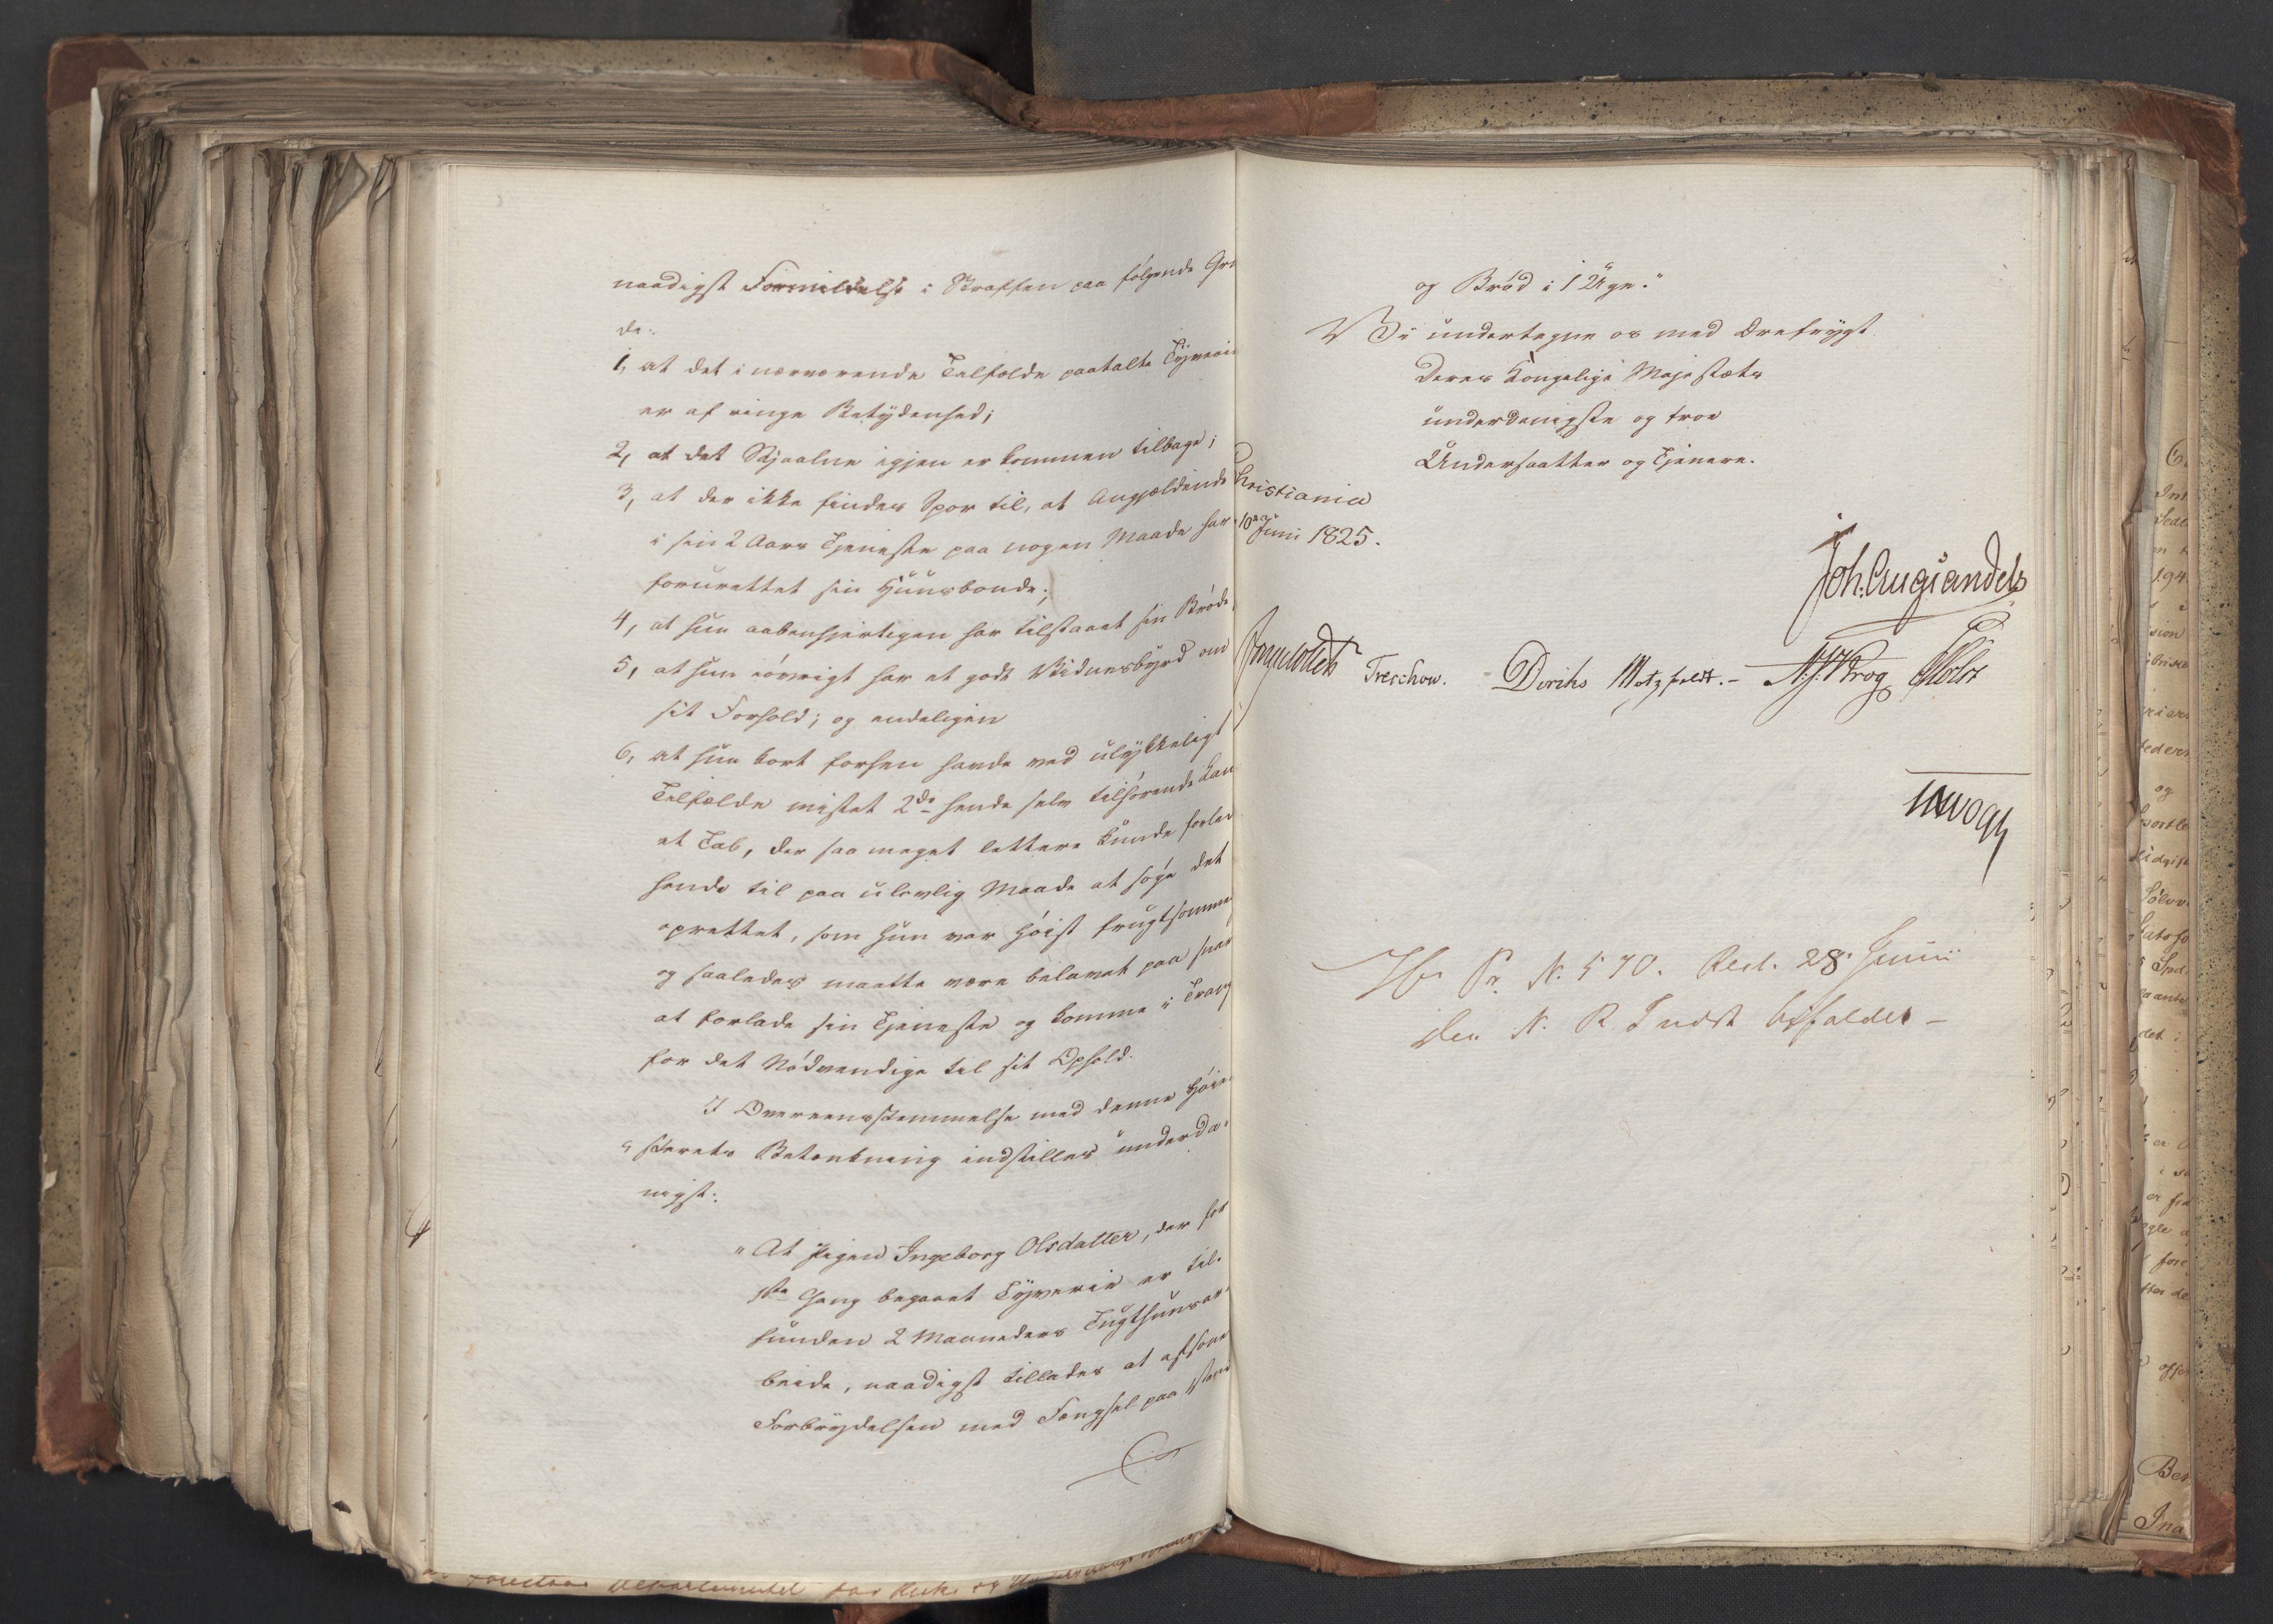 naadigst Formildelse i Straffen paa følgende Grun
de:
1, at det i nærværende Tilfælde paatalte Tyverie
er af ringe Betydenhed;
2, at det Stjaalne igjen er kommen tilbage;
3, at der ikke findes Spor til, at Angjældende
i sin 2 Aars Tjeneste paa nogen Maade har
forurettet sin Huusbonde;
4, at hun aabenhjertigen har tilstaaet sin Brøde,
5, at hun iøvrigt har et godt Vidnesbyrd om
sit Forhold; og endeligen
6, at hun kort forhen havde ved ulykkeligt
Tilfælde mistet 2de hende selv tilhørende
et Tab, der saa meget lettere kunde forlede
hende til paa ulovlig Maade at søge det
oprettet, som hun var høist frugtsommelig
og saaledes maatte være belavet paa snart
at forlade sin Tjeneste og komme i Trang
for det Nødvendige til sit Ophold.
I Overeensstemmelse med denne Høie-
sterets Betænkning indstilles underda-
nigst:
"At Pigen Ingeborg Olsdatter, der for
1ste Gang begaaet Tyverie er til-
funden 2 Maaneders Tugthuusar-
beide, naadigst tillades at afsone
Forbrydelsen med Fængsel paa Vand
og Brød i 12 Dage."
Vi undertegne os med Ærefrygt
Deres Kongelige Majestæts
underdanigste og troe
Undersaatter og Tjenere.
Christiania
10de Juni 1825.
Joh. Aug. Sandels
Treschow. Diriks Motzfeldt. N. J. Krog Holst
Vogt
Pr. N. 570. Resl. 28 Junii
den N. R. Indst. bifaldes